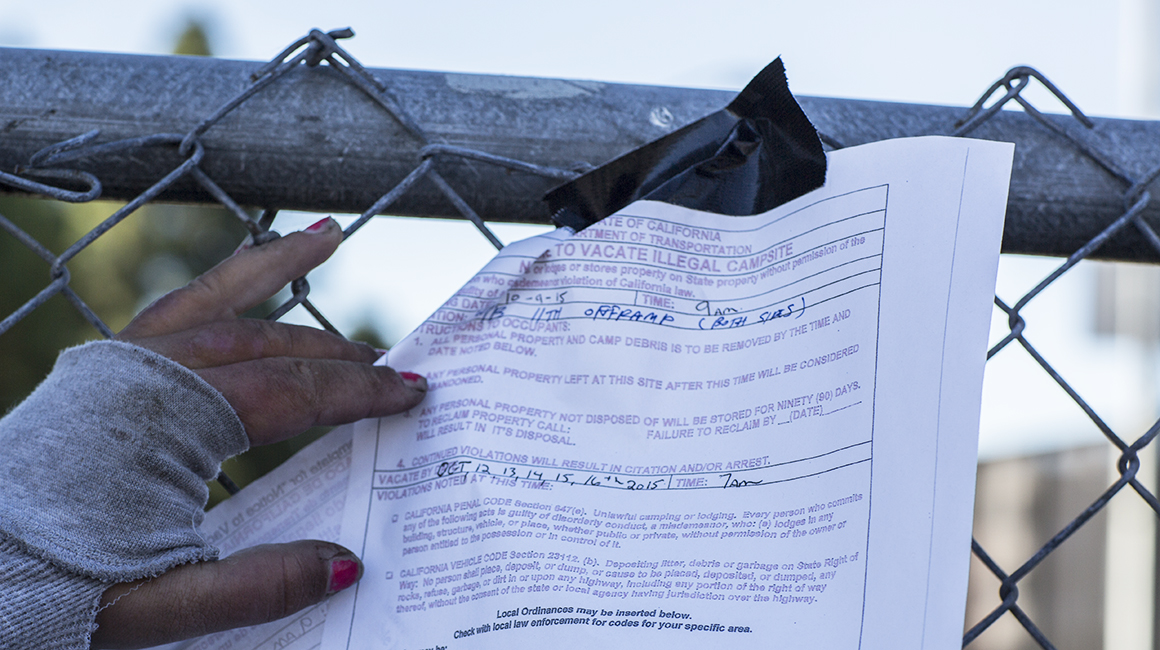 STATE OF CALIFORNIA
DEPARTMENT OF TRANSPORTATION
TO VACATE ILLEGAL CAMPSITE
or lodges or stores property on State property without permission of the
violation of California law.
10-9-15 TIME: 9am
11TH OFFRAMP (BOTH SIDES)
INSTRUCTIONS TO OCCUPANTS:
1. ALL PERSONAL PROPERTY AND CAMP DEBRIS IS TO BE REMOVED BY THE TIME AND
DATE NOTED BELOW.
ANY PERSONAL PROPERTY LEFT AT THIS SITE AFTER THIS TIME WILL BE CONSIDERED
ABANDONED.
ANY PERSONAL PROPERTY NOT DISPOSED OF WILL BE STORED FOR NINETY (90) DAYS.
TO RECLAIM PROPERTY CALL: FAILURE TO RECLAIM BY __(DATE)______
WILL RESULT IN IT'S DISPOSAL.
4. CONTINUED VIOLATIONS WILL RESULT IN CITATION AND/OR ARREST.
VACATE BY OCT, 12, 13, 14, 15, 16TH 2015 TIME: 7am
VIOLATIONS NOTED AT THIS TIME:
CALIFORNIA PENAL CODE Section 647(e). Unlawful camping or lodging. Every person who commits
any of the following acts is guilty of disorderly conduct, a misdemeanor, who: (e) lodges in any
building, structure, vehicle, or place, whether public or private, without permission of the owner or
person entitled to the possession or in control of it.
CALIFORNIA VEHICLE CODE Section 23112. (b). Depositing litter, debris or garbage on State Right of
Way: No person shall place, deposit, or dump, or cause to be placed, deposited, or dumped, any
rocks, refuse, garbage, or dirt in or upon any highway, including any portion of the right of way
thereof, without the consent of the state or local agency having jurisdiction over the highway.
Local Ordinances may be inserted below.
Check with local law enforcement for codes for your specific area.
may be: